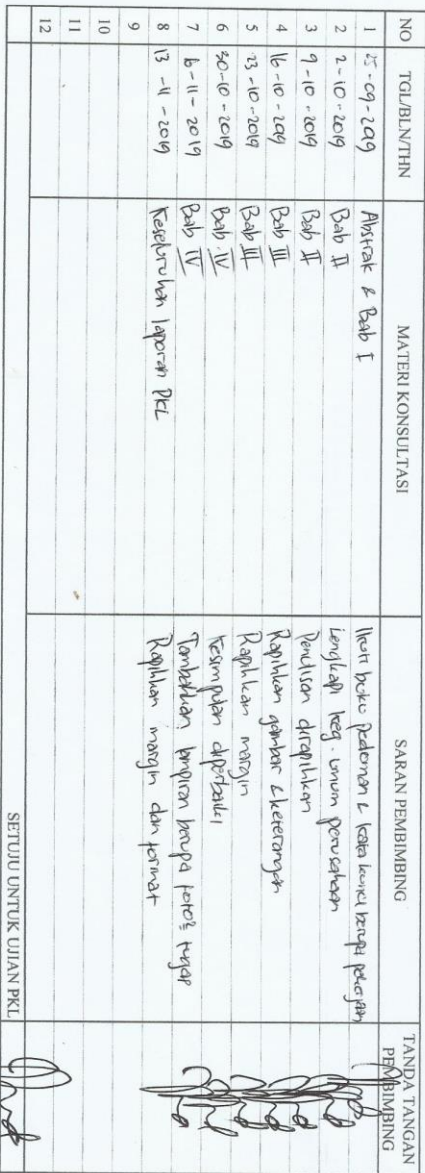 NO TGL/BLN/THN MATERI KONSULTASI SARAN PEMBIMBING TANDA TANGAN PEMBIMBING
1 25-09-2019 Abstrak & Bab I Ikuti buku pedoman & kata kunci berupa pekerjaan
2 2-10-2019 Bab II Lengkapi keg. umum perusahaan
3 9-10-2019 Bab II Penulisan dirapihkan
4 16-10-2019 Bab III Rapihkan gambar & keterangan
5 23-10-2019 Bab III Rapihkan margin
6 30-10-2019 Bab IV Kesimpulan diperbaiki
7 6-11-2019 Bab IV Tambahkan lampiran berupa foto2 tugas
8 13-11-2019 Keseluruhan laporan PKL Rapihkan margin dan format
9
10
11
12
SETUJU UNTUK UJIAN PKL